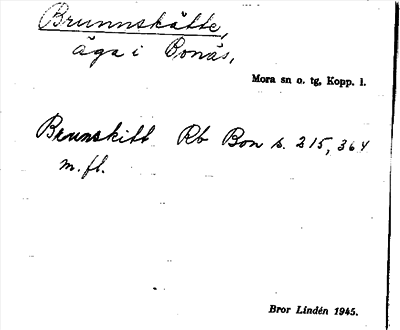 Brunnskätte,
äga i Bonäs,
Mora sn o. tg, Kopp. l.
Brunskitt Rb Bon s. 215, 364
m. fl.
Bror Lindén 1945.